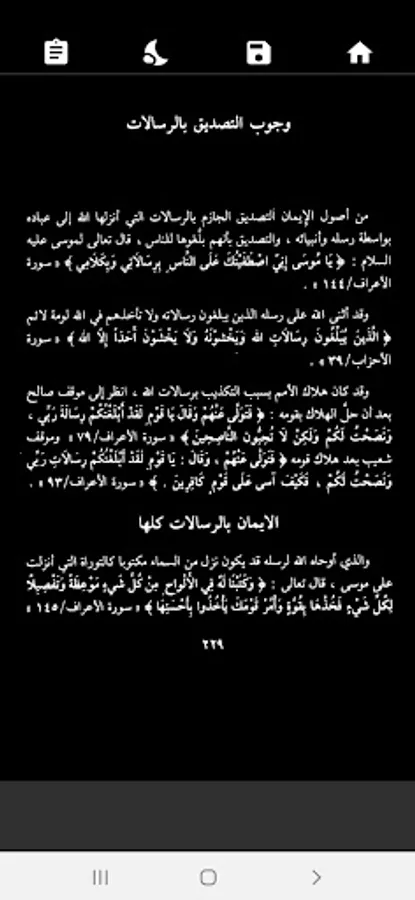 وجوب التصديق بالرسالات
من أصول الإيمان التصديق الجازم بالرسالات التي أنزلها الله إلى عباده
بواسطة رسله وأنبيائه ، والتصديق بأنهم بلّغوها للناس ، قال تعالى لموسى عليه
السلام : ﴿ يَا مُوسَى إِنِّي اصْطَفَيْتُكَ عَلَى النَّاسِ بِرِسَالَاتِي وَبِكَلَامِي ﴾ « سورة
الأعراف/١٤٤ » .
وقد أثنى الله على رسله الذين يبلغون رسالاته ولا تأخذهم في الله لومة لائم
﴿ الَّذِينَ يُبَلِّغُونَ رِسَالَاتِ الله وَيَخْشَوْنَهُ وَلَا يَخْشَوْنَ أَحَداً إِلَّا الله ﴾ « سورة
الأحزاب/٣٩ » .
وقد كان هلاك الأمم بسبب التكذيب برسالات الله ، انظر إلى موقف صالح
بعد أن حلّ الهلاك بقومه : ﴿ فَتَوَلَّى عَنْهُمْ وَقَالَ يَا قَوْمِ لَقَدْ أَبْلَغْتُكُمْ رِسَالَةَ رَبِّي ،
وَنَصَحْتُ لَكُمْ وَلَكِنْ لَا تُحِبُّونَ النَّاصِحِينَ ﴾ « سورة الأعراف/٧٩ » وموقف
شعيب بعد هلاك قومه ﴿ فَتَوَلَّى عَنْهُمْ ، وَقَالَ : يَا قَوْمِ لَقَدْ أَبْلَغْتُكُمْ رِسَالَاتِ رَبِّي
وَنَصَحْتُ لَكُمْ ، فَكَيْفَ آسى عَلَى قَوْمٍ كَافِرِينَ . ﴾ « سورة الأعراف/٩٣ » .
الايمان بالرسالات كلها
والذي أوحاه الله لرسله قد يكون نزل من السماء مكتوبا كالتوراة التي أنزلت
على موسى ، قال تعالى : ﴿ وَكَتَبْنَا لَهُ فِي الْأَلْوَاحِ مِنْ كُلِّ شَيْءٍ مَوْعِظَةً وَتَفْصِيلًا
لِكُلِّ شَيْءٍ فَخُذْهَا بِقُوَّةٍ وَأْمُرْ قَوْمَكَ يَأْخُذُوا بِأَحْسَنِهَا ﴾ « سورة الأعراف/١٤٥ »
٢٢٩